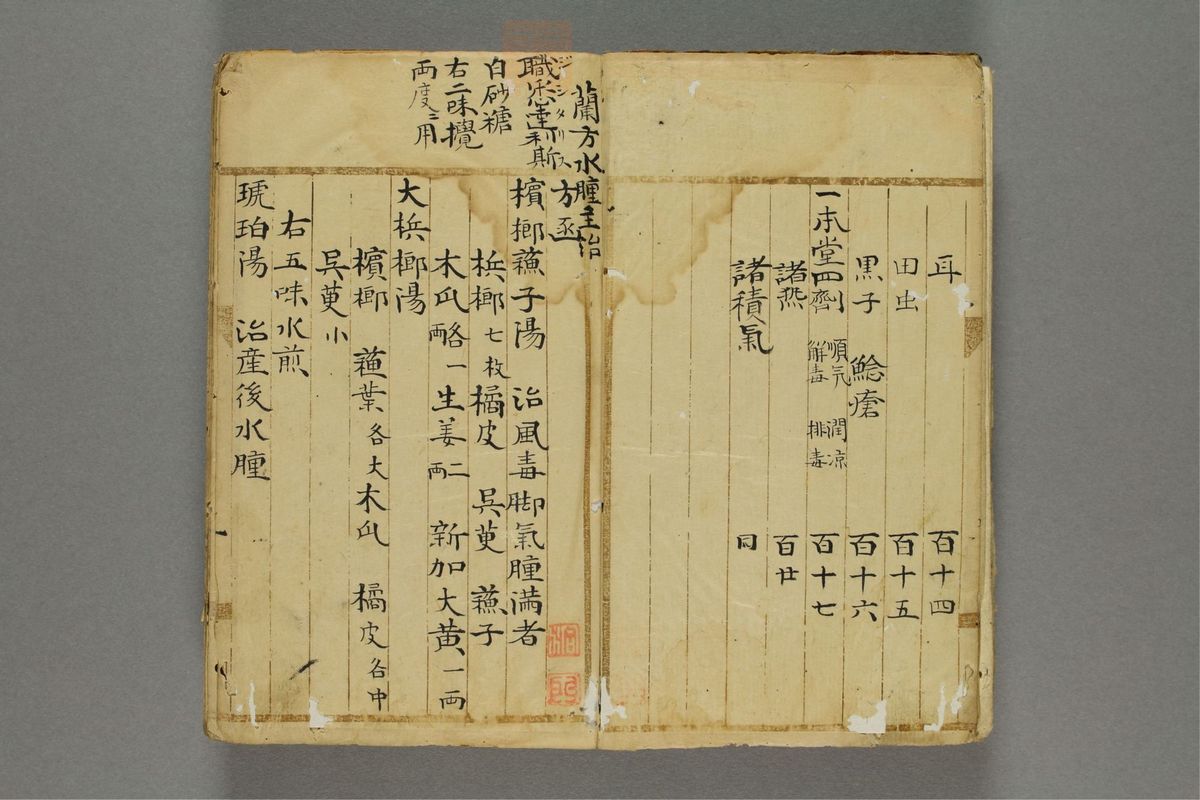 耳 百十四
田虫 百十五
黒子 鯰瘡 百十六
一本堂四劑 順気 解毒 潤涼 排毒 百十七
諸熱 百廿
諸積氣 同
蘭方水腫主治
ヂシタリス
職悉達利斯
白砂糖
右二味攪
両度ニ用
方函
檳榔蘓子湯 治風毒脚氣腫満者
梹榔七枚 橘皮 呉茰 蘓子
木瓜各一両 生姜二両 新加大黄一両
大梹榔湯
檳榔 蘓葉各大 木瓜 橘皮各中
呉茰小
右五味水煎
琥珀湯 治産後水腫